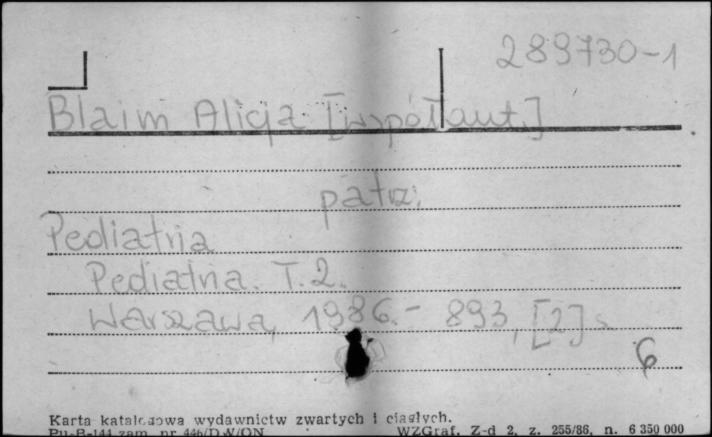 289730-1
Blaim Alicja [współaut.]
patrz:
Pediatria
Pediatria. T. 2.
Warszawa, 1986. - 893, [2] s.
6
Karta katalogowa wydawnictw zwartych i ciągłych.
Pu-B-144 zam. nr 446/D W/ON WZGraf. Z-d 2, z. 255/86, n. 6 350 000